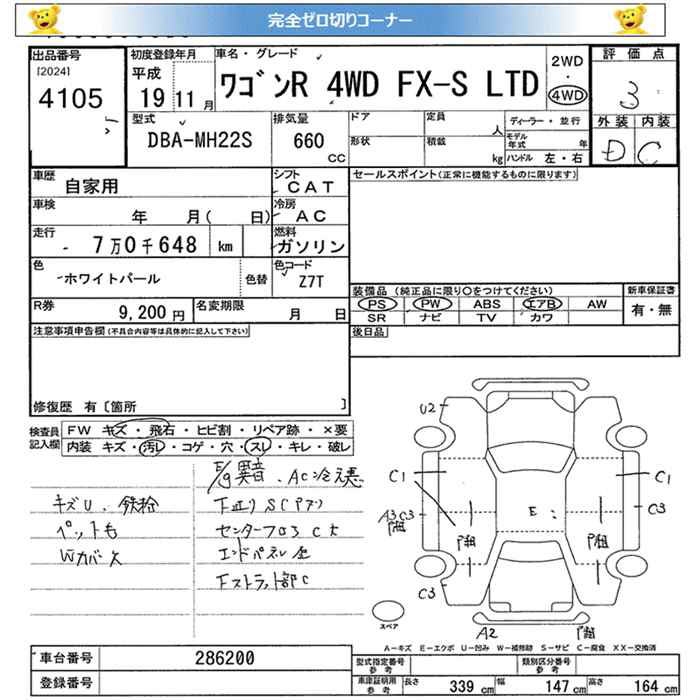 完全ゼロ切りコーナー
出品番号
[2024]
4105
初度登録年月
平成
19 年 11 月
車名・グレード
ワゴンR 4WD FX-S LTD
2WD
・
4WD
評価点
3
外装 内装
D C
型式
DBA-MH22S
排気量
660
CC
ドア
定員
人
形状
積載
kg
ディーラー・並行
モデル年式 年
ハンドル 左・右
車歴
自家用
シフト
CAT
車検
年 月( 日)
冷房
AC
走行
7万0千648 km
燃料
ガソリン
色
ホワイトパール
色替
色コード
Z7T
R券
9,200 円
名変期限
月 日
セールスポイント(正常に機能するものに限ります)
装備品(純正品に限り○をつけてください)
PS PW ABS エアB AW
SR ナビ TV カワ
新車保証書
有・無
後日品
注意事項申告欄(不具合内容等は具体的に記入して下さい)
修復歴 有〔箇所 〕
検査員記入欄
FW キズ・飛石・ヒビ割・リペア跡・×要
内装 キズ・汚レ・コゲ・穴・スレ・キレ・破レ
E/g異音、AC冷え悪
キズU、鉄粉
ペット毛
Wカバー欠
センターフロアC大
Fストラット部C
U2
C1
C1
A3 C3
C3
E
C3
A2
スペア
A-キズ E-エクボ U-凹み W-補修跡 S-サビ C-腐食 XX-交換済
車台番号
286200
登録番号
型式指定番号 参考
類別区分番号 参考
車庫証明用 参考
長さ 339 cm 幅 147 cm 高さ 164 cm